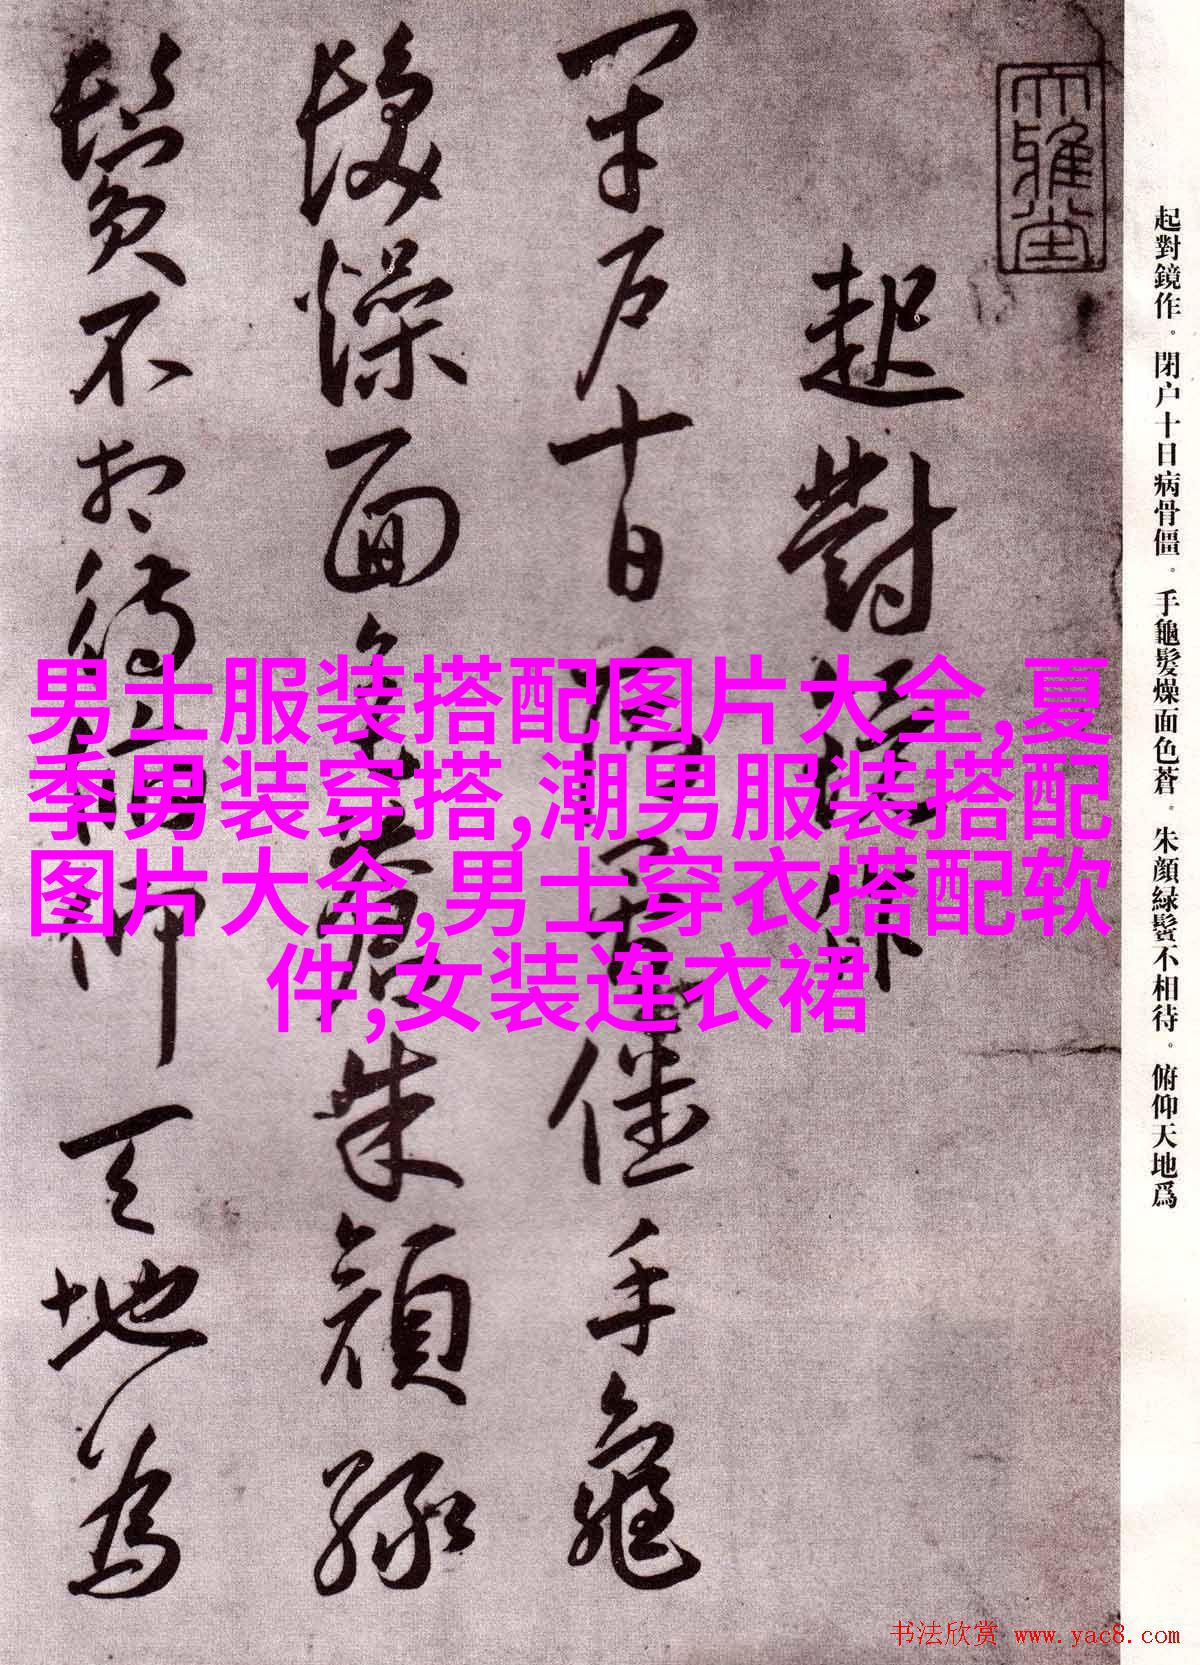 大雅堂
起對鏡作
閉戶十日病骨僵手龜
髮燥面色蒼朱顏綠
鬢不相待俯仰天地為
起對鏡作。閉户十日病骨僵。手龜髮燥面色蒼。朱顏緑鬢不相待。俯仰天地爲
男士服装搭配图片大全,夏
季男装穿搭,潮男服装搭配
图片大全,男士穿衣搭配软
件,女装连衣裙
书法欣赏 www.yac8.com